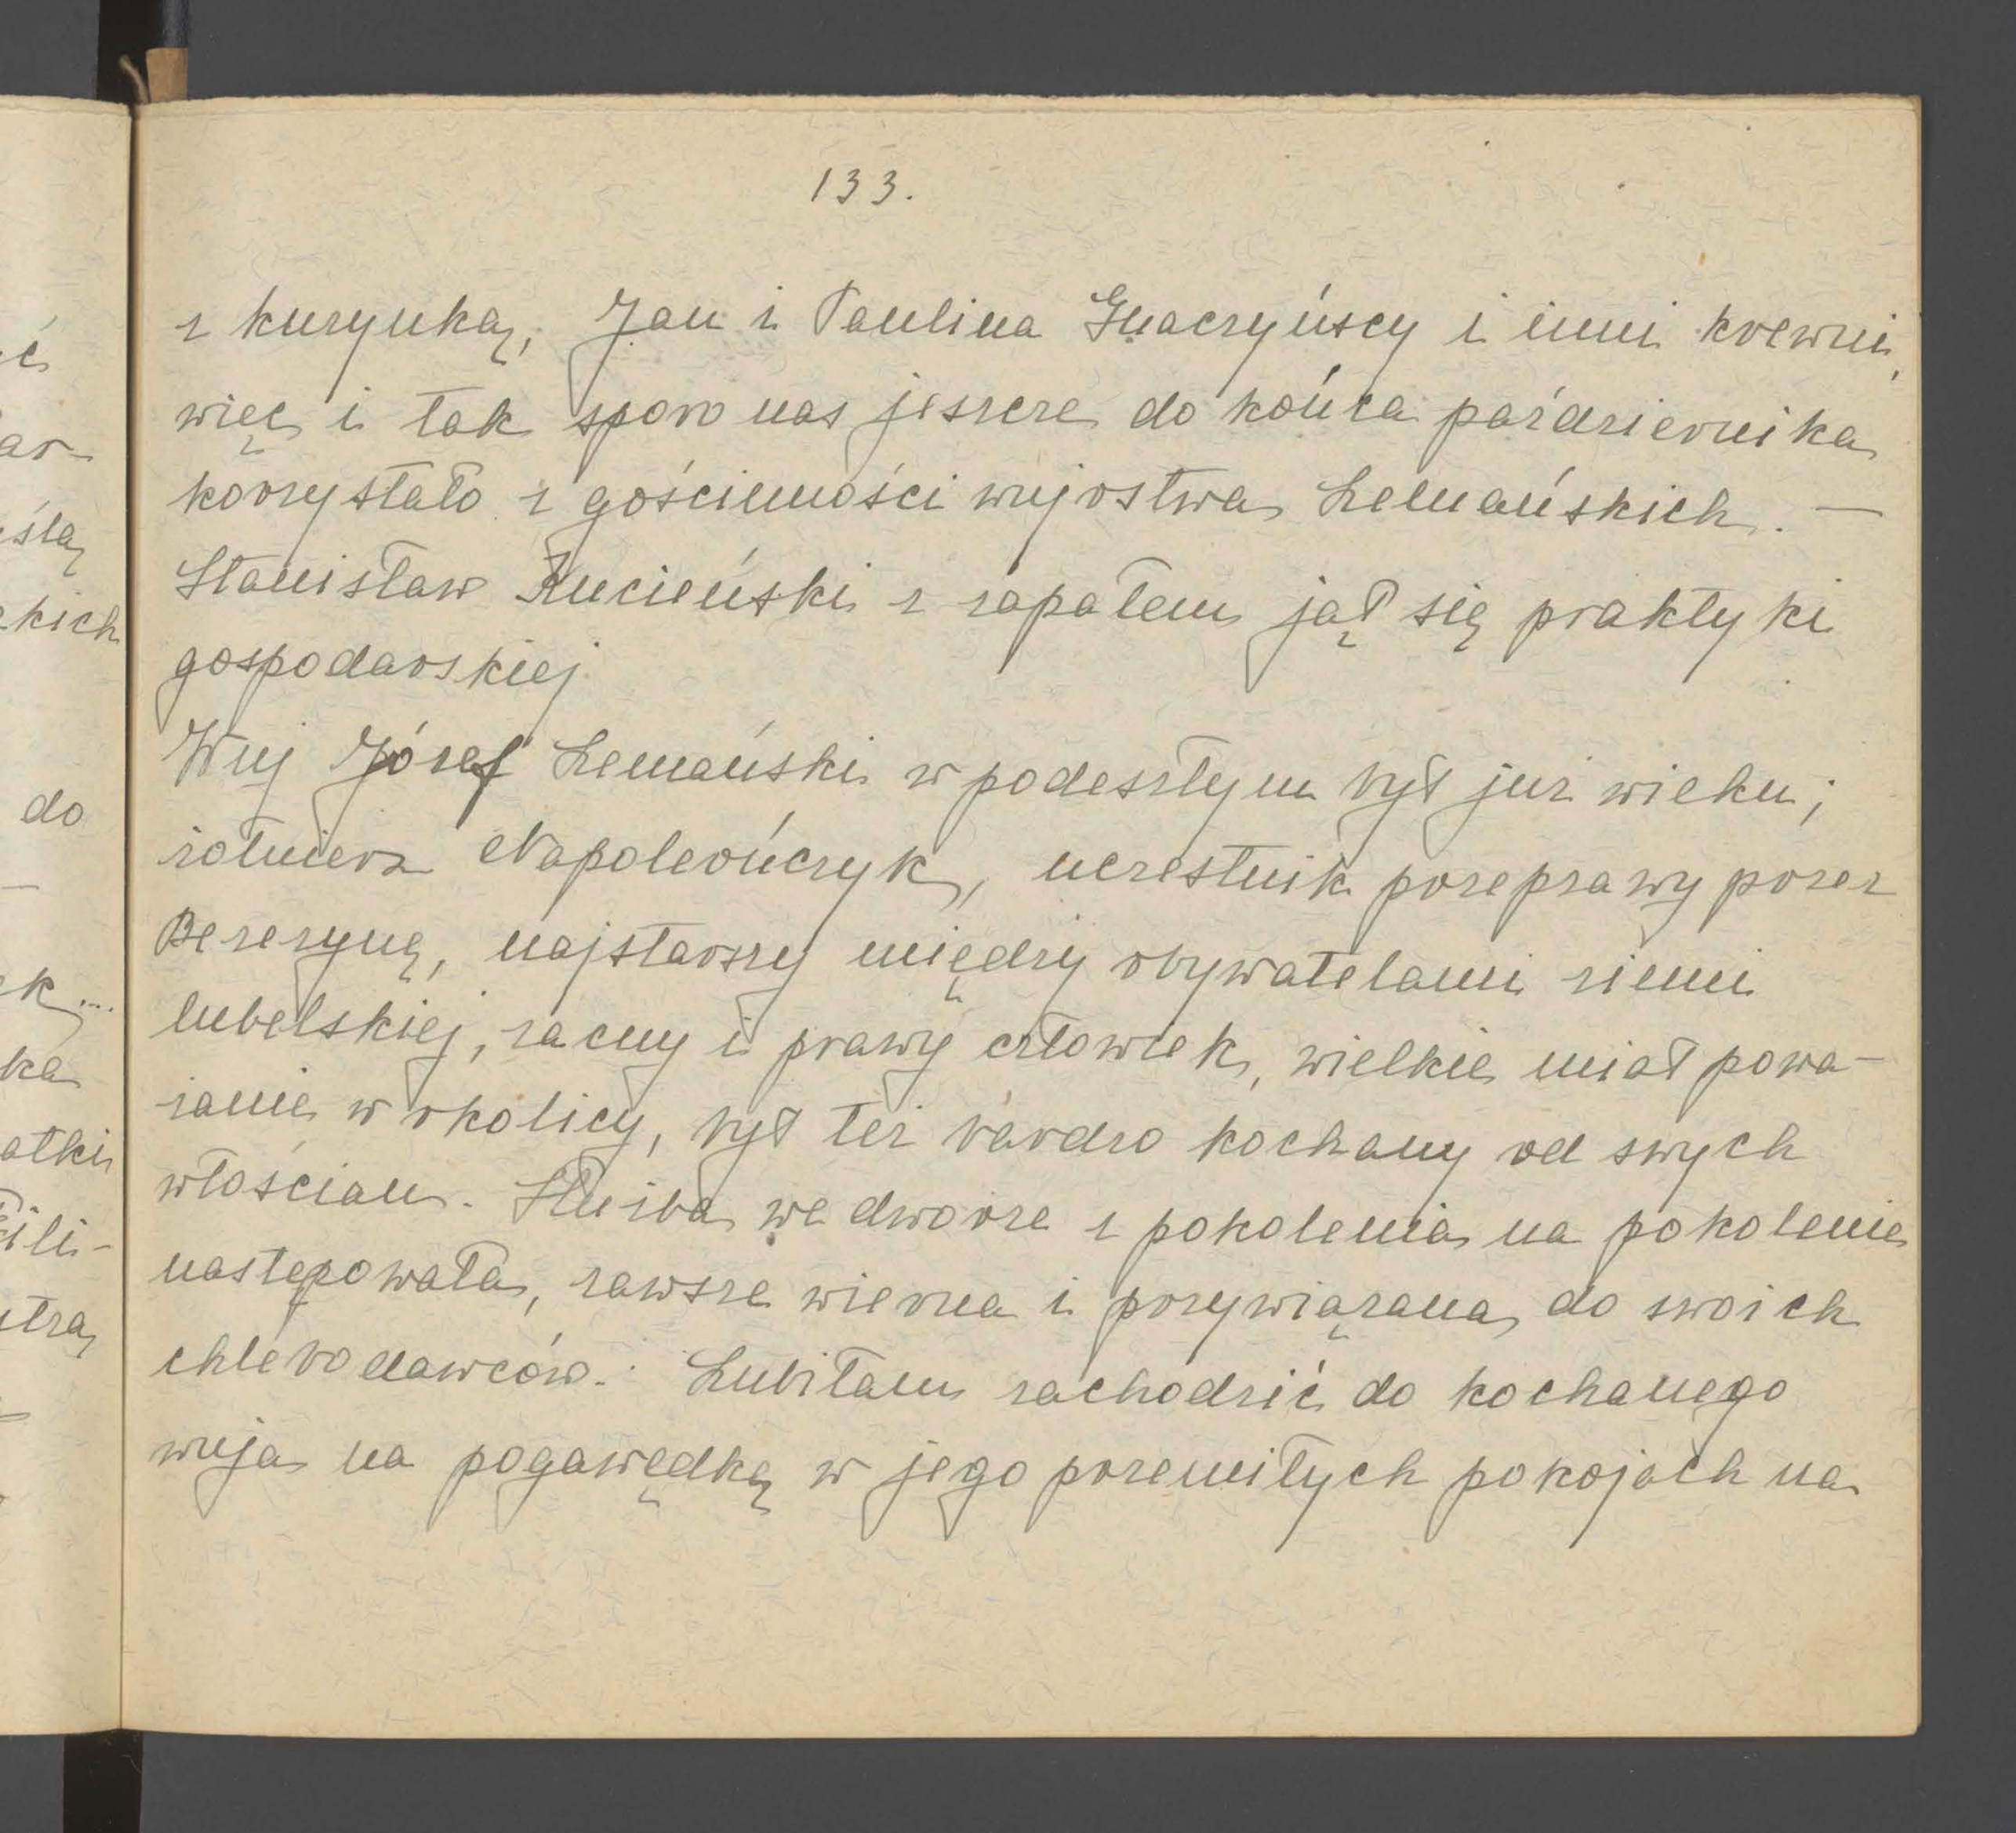 133.
z kuzynką, Jan i Paulina Gnaczyńscy i inni krewni,
więc i tak sporo nas jeszcze do końca października
korzystało z gościnności wujostwa Lemańskich. —
Stanisław Kucieński z zapałem jął się praktyki
gospodarskiej
Wuj Józef Lemański w podeszłym był już wieku;
żołnierz Napoleończyk, uczestnik przeprawy przez
Berezynę, najstarszy między obywatelami ziemi
lubelskiej, zacny i prawy człowiek, wielkie miał powa-
żanie w okolicy, był też bardzo kochany od swych
włościan. Służba we dworze z pokolenia na pokolenie
następowała, zawsze wierna i przywiązana do swoich
chlebodawców. Lubiłam zachodzić do kochanego
wuja na pogawędkę w jego przemiłych pokojach na